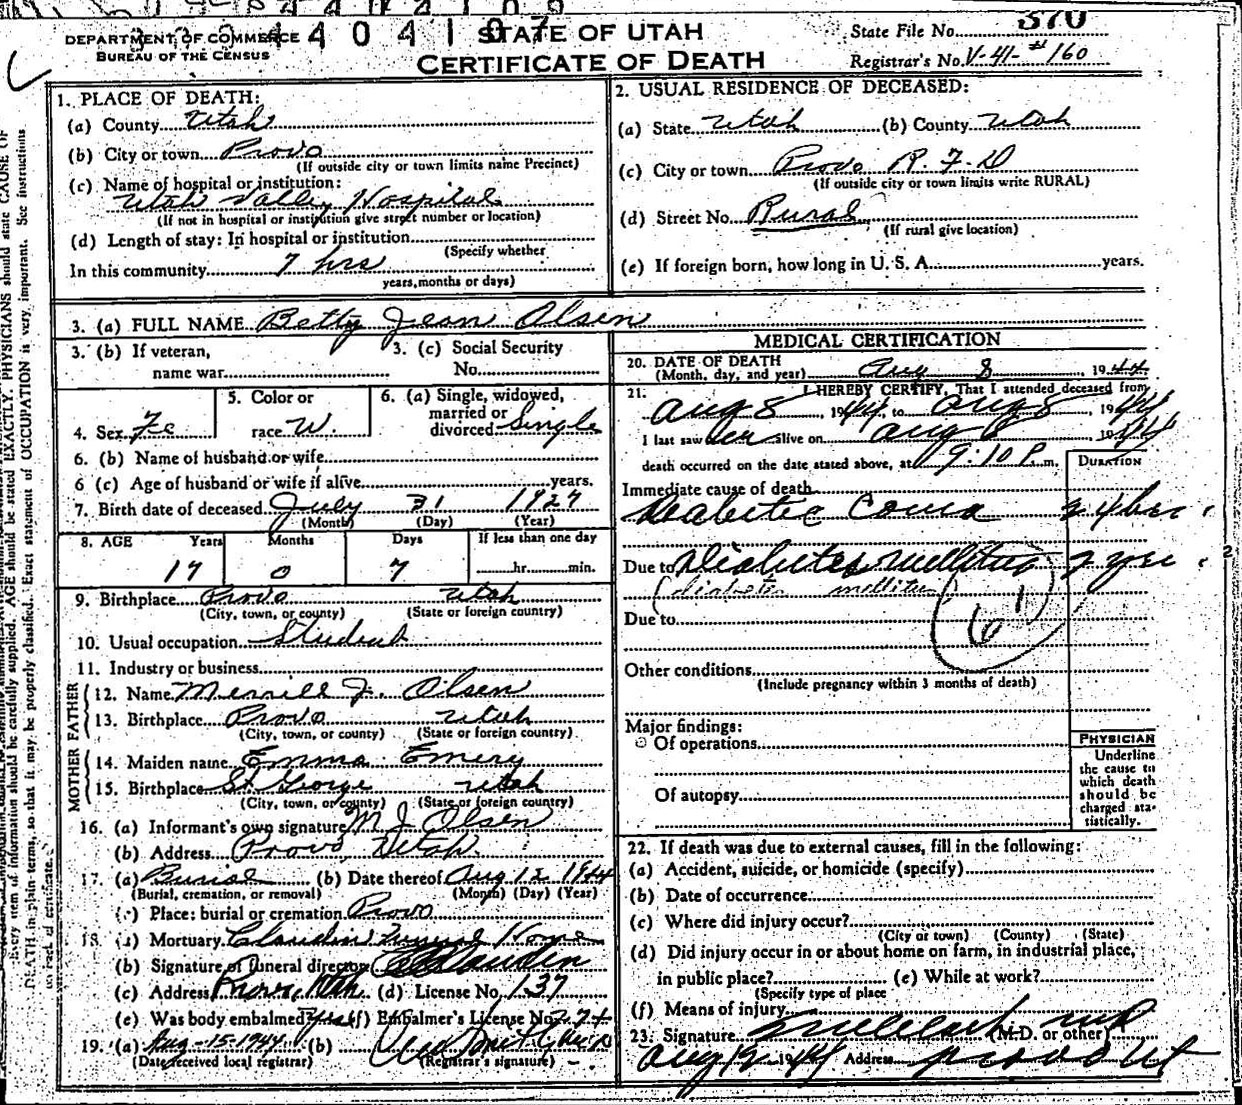 DEPARTMENT OF COMMERCE
BUREAU OF THE CENSUS
STATE OF UTAH
CERTIFICATE OF DEATH
State File No. 370
Registrar's No. V-41-#160
1. PLACE OF DEATH:
(a) County Utah
(b) City or town Provo
(If outside city or town limits name Precinct)
(c) Name of hospital or institution:
Utah Valley Hospital
(If not in hospital or institution give street number or location)
(d) Length of stay: In hospital or institution
(Specify whether
In this community 7 hrs
years, months or days)
2. USUAL RESIDENCE OF DECEASED:
(a) State Utah (b) County Utah
(c) City or town Provo R.F.D
(If outside city or town limits write RURAL)
(d) Street No. Rural
(If rural give location)
(e) If foreign born, how long in U. S. A. years.
3. (a) FULL NAME Betty Jean Olsen
3. (b) If veteran,
name war
3. (c) Social Security
No.
4. Sex Fe
5. Color or
race W
6. (a) Single, widowed,
married or
divorced Single
6. (b) Name of husband or wife
6 (c) Age of husband or wife if alive years.
7. Birth date of deceased July 31 1927
(Month) (Day) (Year)
8. AGE Years Months Days If less than one day
17 0 7 hr. min.
9. Birthplace Provo Utah
(City, town, or county) (State or foreign country)
10. Usual occupation Student
11. Industry or business
FATHER
12. Name Merrill J. Olsen
13. Birthplace Provo Utah
(City, town, or county) (State or foreign country)
MOTHER
14. Maiden name Emma Emery
15. Birthplace St George Utah
(City, town, or county) (State or foreign country)
16. (a) Informant's own signature M J Olsen
(b) Address Provo, Utah
17. (a) Burial (b) Date thereof Aug 12 1944
(Burial, cremation, or removal) (Month) (Day) (Year)
(c) Place: burial or cremation Provo
18. (a) Mortuary Claudin Funeral Home
(b) Signature of funeral director Claudin
(c) Address Provo, Utah (d) License No. 137
(e) Was body embalmed? Yes (f) Embalmer's License No. 274
19. (a) Aug-15-1944 (b)
(Date received local registrar) (Registrar's signature)
MEDICAL CERTIFICATION
20. DATE OF DEATH
(Month, day, and year) Aug 8 1944
21. I HEREBY CERTIFY, That I attended deceased from
Aug 8, 1944, to Aug 8, 1944
I last saw her alive on Aug 8 1944
death occurred on the date stated above, at 9:10 P.m.
DURATION
Immediate cause of death
Diabetic Coma 24 hrs
Due to Diabetes mellitus 2 yrs
(diabetes mellitus
Due to 61
Other conditions
(Include pregnancy within 3 months of death)
Major findings:
Of operations
Of autopsy
PHYSICIAN
Underline
the cause to
which death
should be
charged sta-
tistically.
22. If death was due to external causes, fill in the following:
(a) Accident, suicide, or homicide (specify)
(b) Date of occurrence
(c) Where did injury occur?
(City or town) (County) (State)
(d) Did injury occur in or about home on farm, in industrial place,
in public place? (e) While at work?
(Specify type of place
(f) Means of injury
23. Signature (M.D. or other)
Aug 12 1944 Address Provo Ut